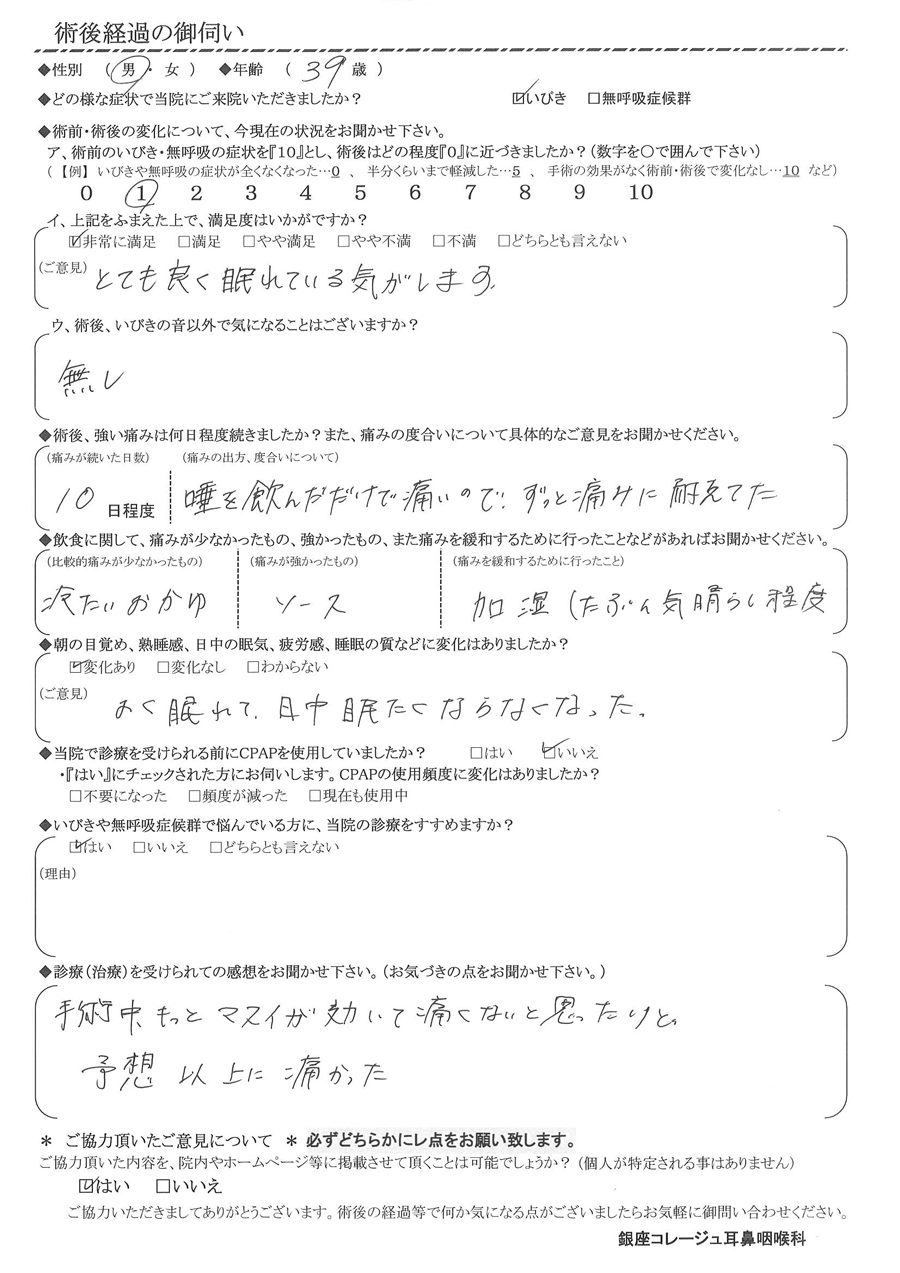 術後経過の御伺い
◆性別 （ 男 ・ 女 ） ◆年齢 （ 39 歳 ）
◆どの様な症状で当院にご来院いただきましたか？ ☑いびき □無呼吸症候群
◆術前・術後の変化について、今現在の状況をお聞かせ下さい。
ア、術前のいびき・無呼吸の症状を『10』とし、術後はどの程度『0』に近づきましたか？（数字を〇で囲んで下さい）
（ 【例】 いびきや無呼吸の症状が全くなくなった…0 、 半分くらいまで軽減した…5 、 手術の効果がなく術前・術後で変化なし…10 など）
0 1 2 3 4 5 6 7 8 9 10
イ、上記をふまえた上で、満足度はいかがですか？
☑非常に満足 □満足 □やや満足 □やや不満 □不満 □どちらとも言えない
（ご意見） とても良く眠れている気がします。
ウ、術後、いびきの音以外で気になることはございますか？
無し
◆術後、強い痛みは何日程度続きましたか？また、痛みの度合いについて具体的なご意見をお聞かせください。
（痛みが続いた日数） （痛みの出方、度合いについて）
10 日程度 唾を飲んだだけで痛いので、ずっと痛みに耐えてた
◆飲食に関して、痛みが少なかったもの、強かったもの、また痛みを緩和するために行ったことなどがあればお聞かせください。
（比較的痛みが少なかったもの） （痛みが強かったもの） （痛みを緩和するために行ったこと）
冷たいおかゆ ソース 加湿（たぶん気晴らし程度
◆朝の目覚め、熟睡感、日中の眠気、疲労感、睡眠の質などに変化はありましたか？
☑変化あり □変化なし □わからない
（ご意見） よく眠れて、日中眠たくならなくなった。
◆当院で診療を受けられる前にCPAPを使用していましたか？ □はい ☑いいえ
・『はい』にチェックされた方にお伺いします。CPAPの使用頻度に変化はありましたか？
□不要になった □頻度が減った □現在も使用中
◆いびきや無呼吸症候群で悩んでいる方に、当院の診療をすすめますか？
☑はい □いいえ □どちらとも言えない
（理由）
◆診療（治療）を受けられての感想をお聞かせ下さい。（お気づきの点をお聞かせ下さい。）
手術中、もっとマスイが効いて痛くないと思ったけど、
予想以上に痛かった
＊ ご協力頂いたご意見について ＊ 必ずどちらかにレ点をお願い致します。
ご協力頂いた内容を、院内やホームページ等に掲載させて頂くことは可能でしょうか？（個人が特定される事はありません）
☑はい □いいえ
ご協力いただきましてありがとうございます。術後の経過等で何か気になる点がございましたらお気軽に御問い合わせください。
銀座コレージュ耳鼻咽喉科